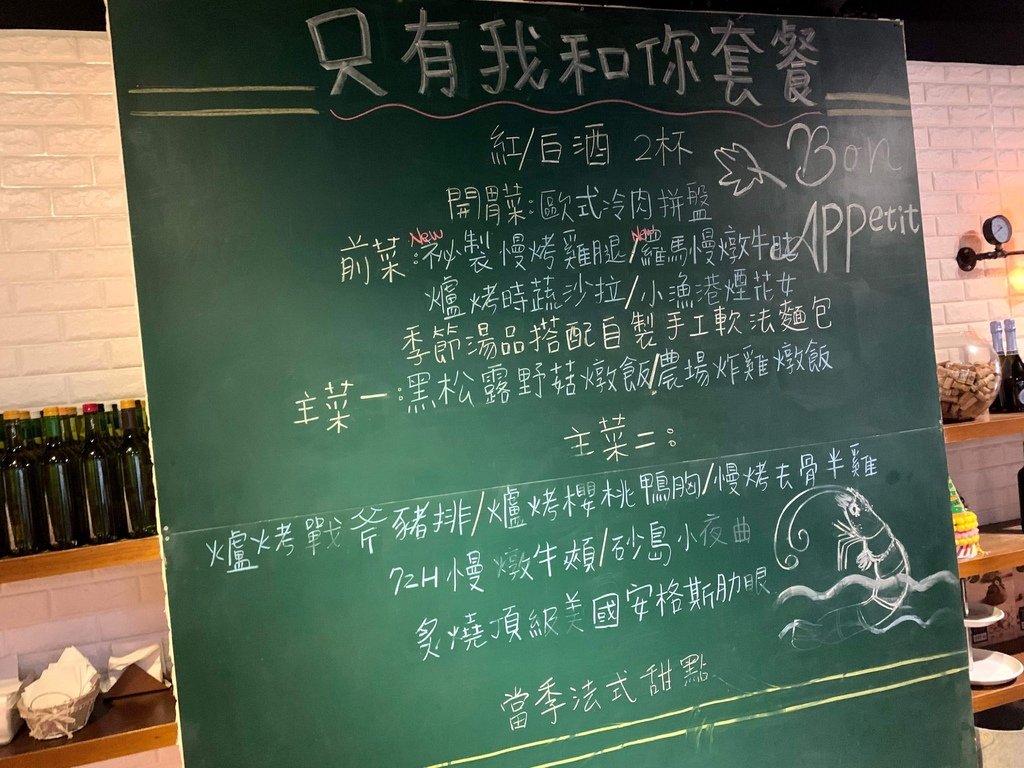 只有我和你套餐
紅/白酒 2杯
Bon
APPetit
開胃菜:歐式冷肉拼盤
New New
前菜:祕製慢烤雞腿/羅馬慢燉牛肚
爐烤時蔬沙拉/小漁港煙花女
季節湯品搭配自製手工軟法麵包
主菜一:黑松露野菇燉飯/農場炸雞燉飯
主菜二:
爐烤戰斧豬排/爐烤櫻桃鴨胸/慢烤去骨半雞
72H慢燉牛頰/砂島小夜曲
炙燒頂級美國安格斯肋眼
當季法式甜點